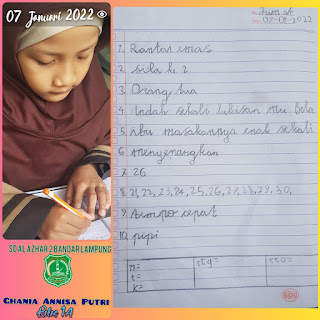 07 Januari 2022
SD AL AZHAR 2 BANDAR LAMPUNG
Chania Annisa Putri
Kelas 1A
07-01-2022
1. Rantai emas
2. sila ke 2
3. Orang tua
4. Indah sekali lukisan mu Bila
5. Ibu masakannya enak sekali
6. menyenangkan
7. 26
8. 21, 22, 23, 24, 25, 26, 27, 28, 29, 30,
9. tempo cepat
10. pipi